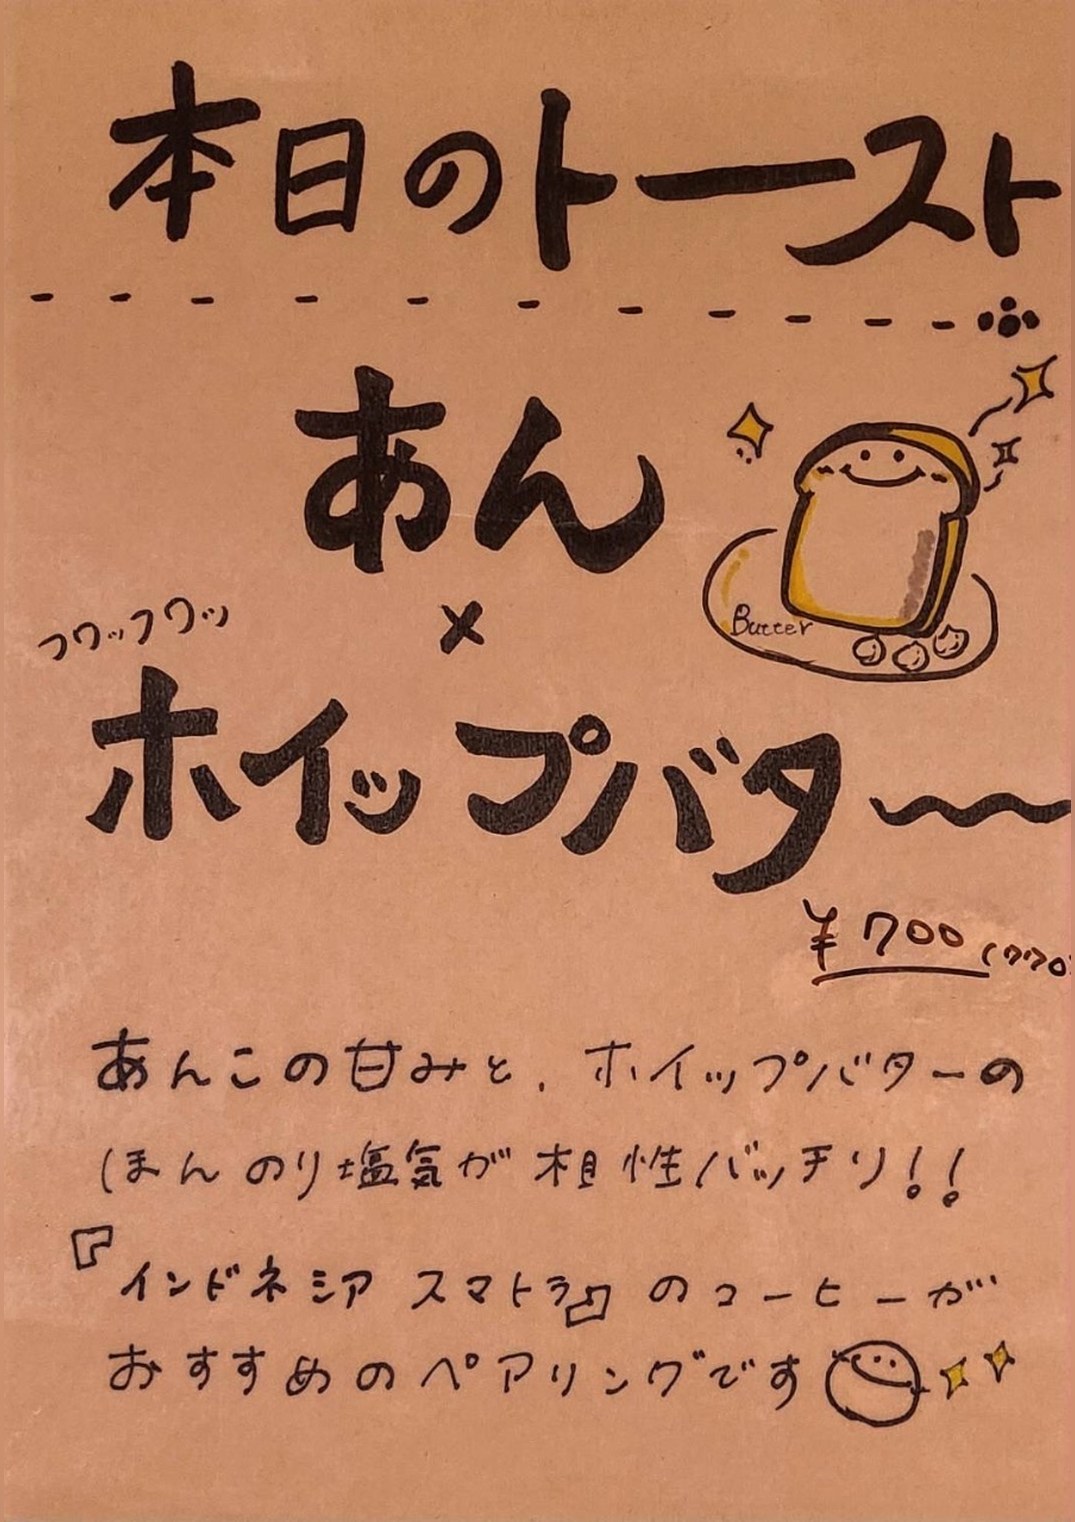 本日のトースト
あん
Butter
×
フワッフワッ
ホイップバター
¥700(770
あんこの甘みと、ホイップバターの
ほんのり塩気が相性バッチリ!!
『インドネシア スマトラ』のコーヒーが
おすすめのペアリングです